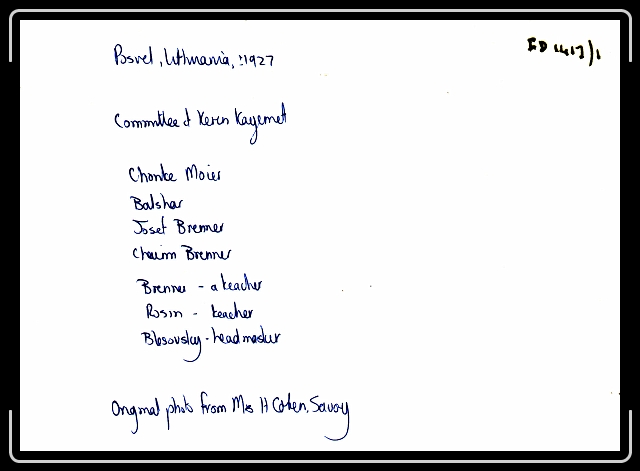 Posvel, Lithuania, :1927
ED 1417/1
Committee of Keren Kayemet
Chonke Moier
Balshar
Josef Brenner
Chaim Brenner
Brenner - a teacher
Rosin - teacher
Blosovsky - headmaster
Original photo from Mrs H Cohen, Savoy